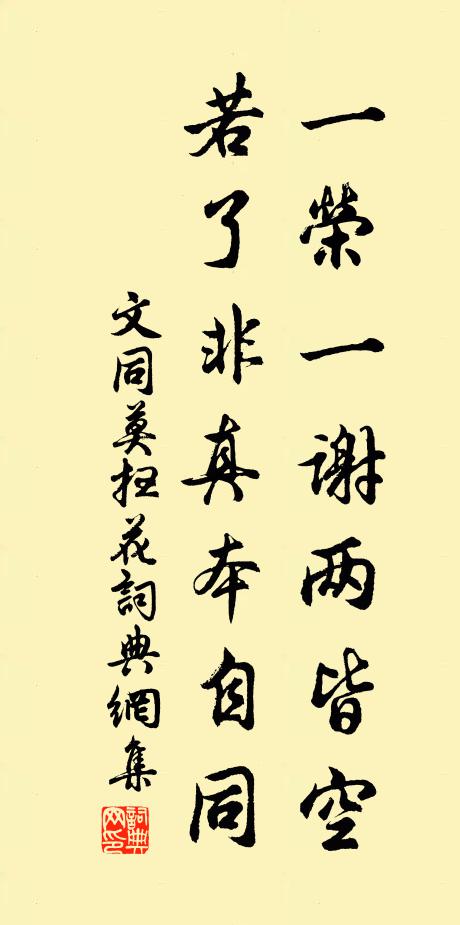 一榮一謝两皆空
若了非真本自同
文同莫花詞典網集
詞典
网印